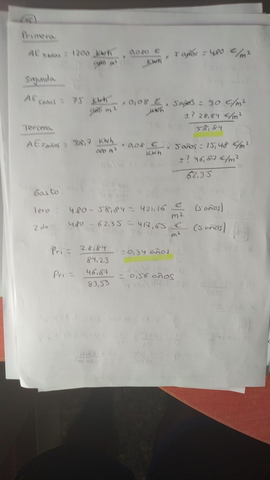 Primera
AE Estos = 1200 kWh/año m² · 0,080 €/kWh · 5 años = 480 €/m²
Segunda
AE = 75 kWh/año m² · 0,08 €/kWh · 5 años = 30 €/m²
±? 28,84 €/m²
58,84
Tercera
AE = 38,7 kWh/año m² · 0,08 €/kWh · 5 años = 15,48 €/m²
±? 46,87 €/m²
62,35
Gasto
1ero: 480 - 58,84 = 421,16 €/m² (5 años)
2do: 480 - 62,35 = 417,65 €/m² (5 años)
Pri = 28,84/84,23 = 0,34 años
Pri = 46,87/83,53 = 0,56 años